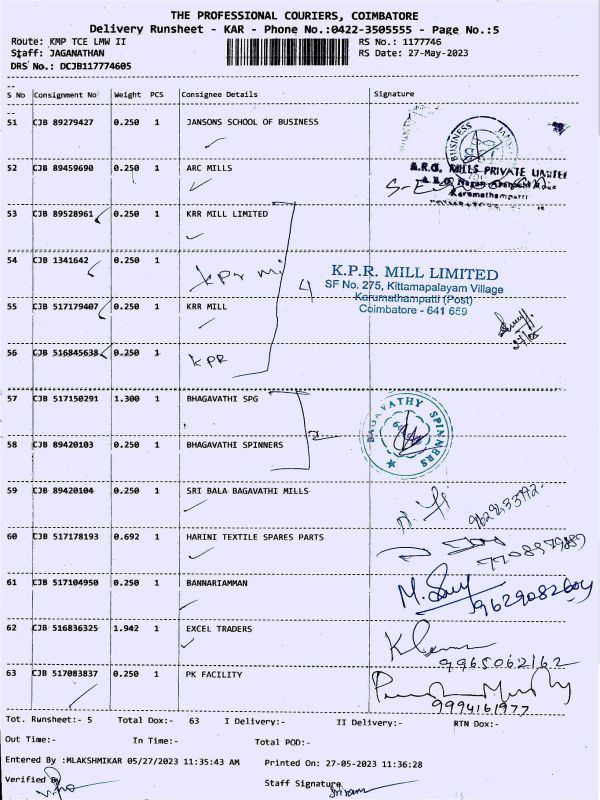 THE PROFESSIONAL COURIERS, COIMBATORE
Delivery Runsheet - KAR - Phone No.:0422-3505555 - Page No.:5
Route: KMP TCE LMW II RS No.: 1177746
Staff: JAGANATHAN RS Date: 27-May-2023
DRS No.: DCJB117774605
S No Consignment No Weight PCS Consignee Details Signature
51 CJB 89279427 0.250 1 JANSONS SCHOOL OF BUSINESS
BUSINESS
52 CJB 89459690 0.250 1 ARC MILLS
A.R.C. MILLS PRIVATE LIMITED
Karamathampatti
53 CJB 89528961 0.250 1 KRR MILL LIMITED
54 CJB 1341642 0.250 1 kpr mi
4
K.P.R. MILL LIMITED
SF No. 275, Kittamapalayam Village
Karumathampatti (Post)
Coimbatore - 641 659
55 CJB 517179407 0.250 1 KRR MILL
56 CJB 516845638 0.250 1 KPR
57 CJB 517150291 1.300 1 BHAGAVATHI SPG
BAGAVATHY SPINNERS
58 CJB 89420103 0.250 1 BHAGAVATHI SPINNERS
59 CJB 89420104 0.250 1 SRI BALA BAGAVATHI MILLS
60 CJB 517178193 0.692 1 HARINI TEXTILE SPARES PARTS
7708979889
61 CJB 517104950 0.250 1 BANNARIAMMAN
9629082604
62 CJB 516836325 1.942 1 EXCEL TRADERS
9965062162
63 CJB 517083837 0.250 1 PK FACILITY
9994161977
Tot. Runsheet:- 5 Total Dox:- 63 I Delivery:- II Delivery:- RTN Dox:-
Out Time:- In Time:- Total POD:-
Entered By :MLAKSHMIKAR 05/27/2023 11:35:43 AM Printed On: 27-05-2023 11:36:28
Verified By Staff Signature
Sriram